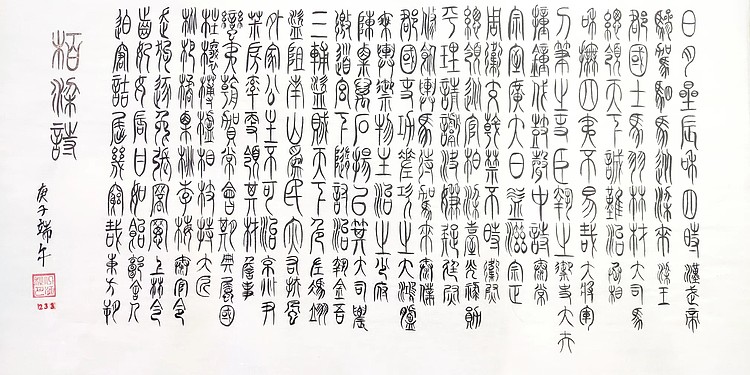 日月星辰和四時 漢武帝
驂駕駟馬從梁來 梁王
郡國士馬羽林材 大司馬
總領天下誠難治 丞相
和撫四夷不易哉 大將軍
刀筆之吏臣執之 御史大夫
撞鐘伐鼓聲中詩 泰常
宗室廣大日益滋 宗正
周衛交戟禁不時 衛尉
總領從官柏梁臺 光祿勛
平理請讞決嫌疑 廷尉
修飾輿馬待駕來 泰僕
郡國吏功差次之 大鴻臚
乘輿御物主治之 少府
陳粟萬石揚以箕 大司農
徼道宮下隨討治 執金吾
三輔盜賊天下危 左馮翊
盜阻南山爲民災 右扶風
外家公主不可治 京兆尹
椒房率更領其材 詹事
蠻夷朝賀常會期 典屬國
柱枅欂櫨相枝持 大匠
枇杷橘栗桃李梅 泰官令
走狗逐兔張罘罳 上林令
齧妃女脣甘如飴 郭舍人
迫窘詰屈幾窮哉 東方朔
柏梁詩
庚子端午